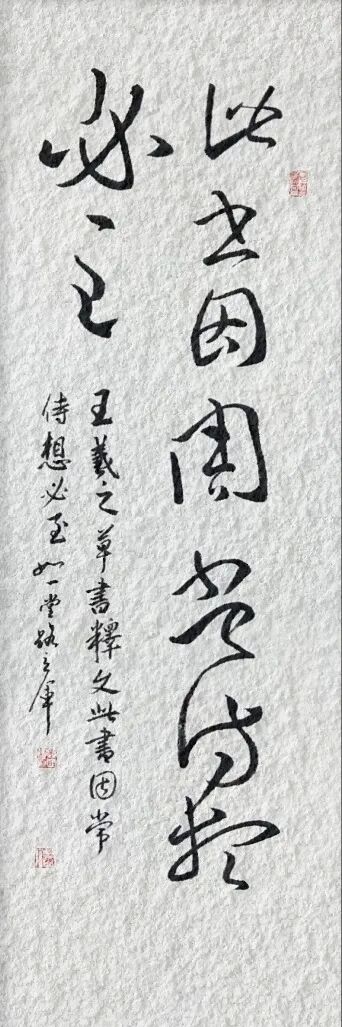 此書因周常侍想
必至
王羲之草書釋文此書因常
侍想必至如一堂